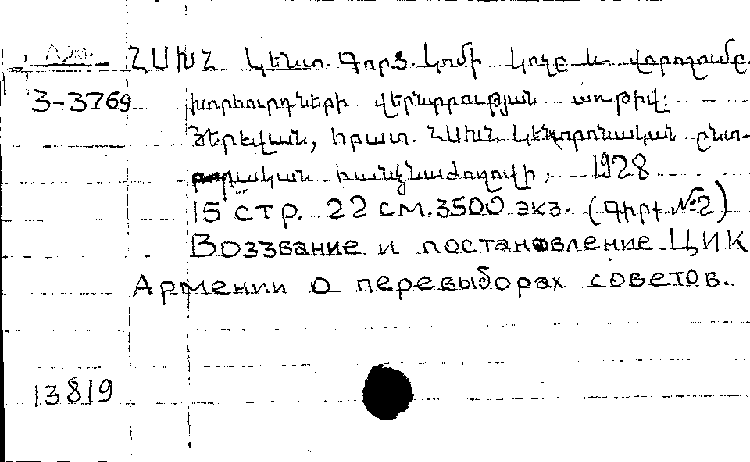 ՀՍԽՀ Կենտ. Գործ. Կոմի կոչը և վորոշումը
3-3769 խորհուրդների վերընտրության առթիվ:
Յերևան, հրատ. ՀՍԽՀ Կենտրոնական ընտ-
րական հանձնաժողովի, 1928
15 стр. 22 см. 3500 экз. (Գիրք №2)
Воззвание и постановление ЦИК
Армении о перевыборах советов.
13819